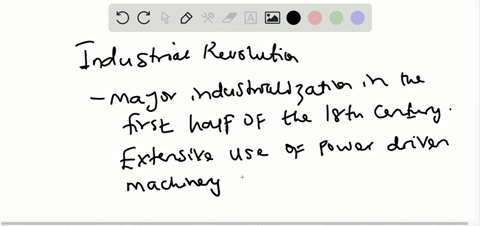 Industrial Revolution
- Major industrialization in the
first half of the 18th Century.
Extensive use of power driven
machinery